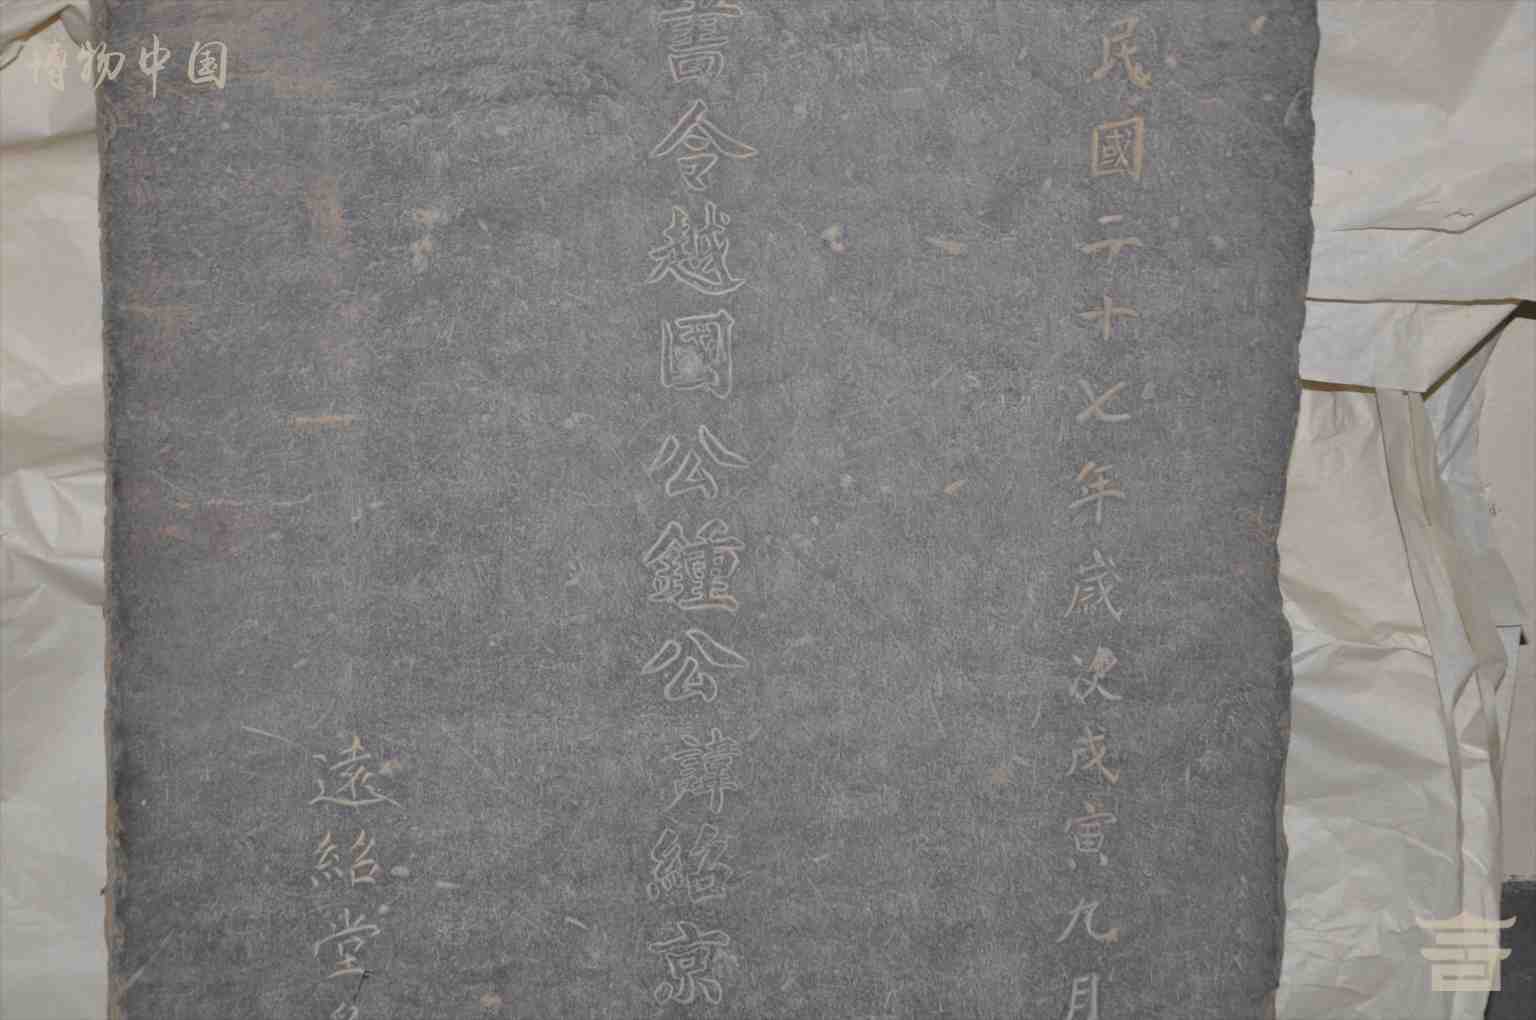 博物中国
民國二十七年歲次戊寅九月
書令越國公鍾公諱紹京
遠紹堂